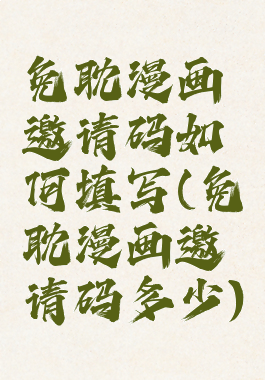 兔耽漫画
邀请码如
何填写(兔
耽漫画邀
请码多少)